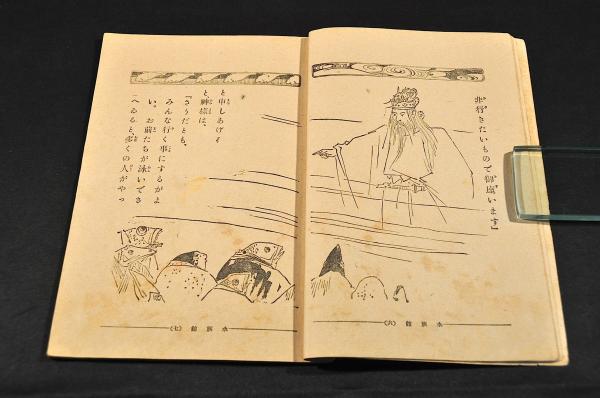 非行きたいもので御座います」
水族館（六）
と申しあげる
と、神様は、
「さうだとも、
みんな行く事にするがよ
い。お前たちが泳いでさ
へゐると、多くの人がやつ
水族館（七）